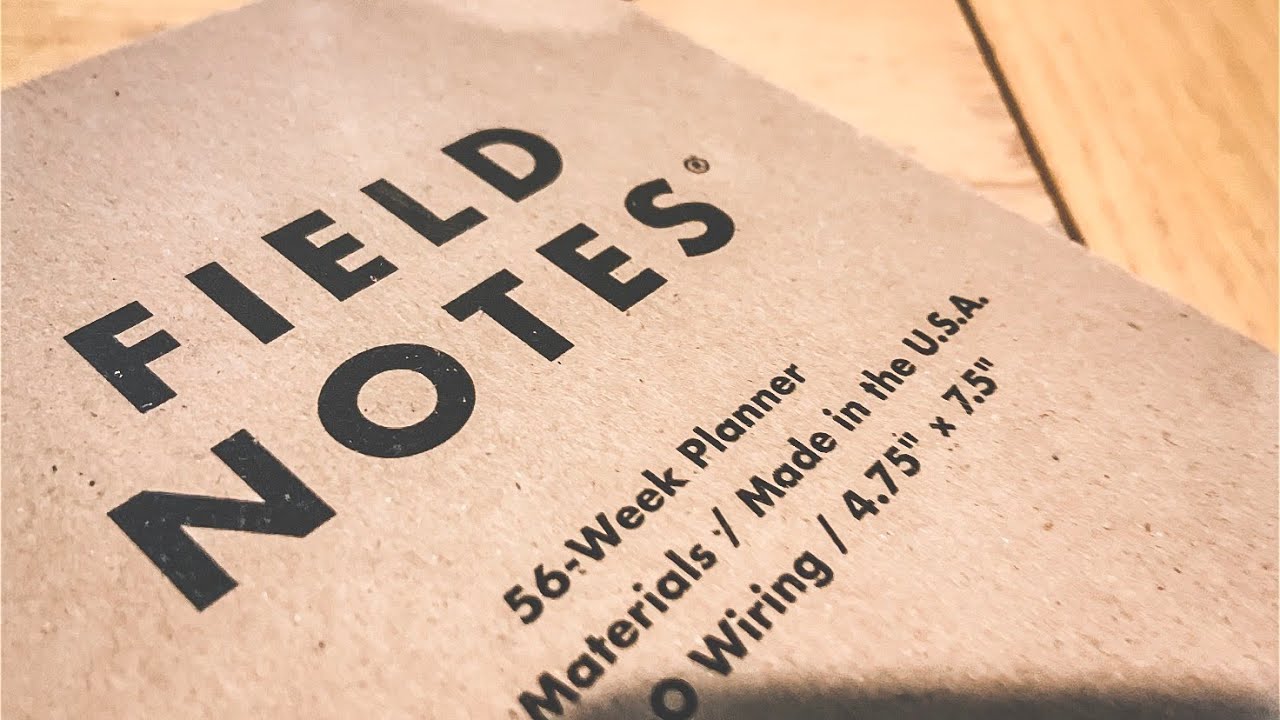 FIELD
NOTES®
56-Week Planner
Materials / Made in the U.S.A.
O Wiring / 4.75" x 7.5"